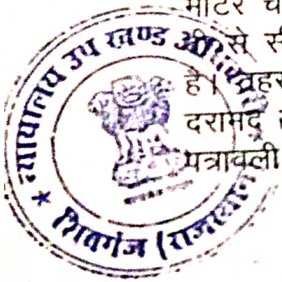 मोटर च
से सी
है। व्रहस
दरामद
पत्रावली
न्यायालय उप खण्ड अधि
★ शिवगंज (राजस्थान